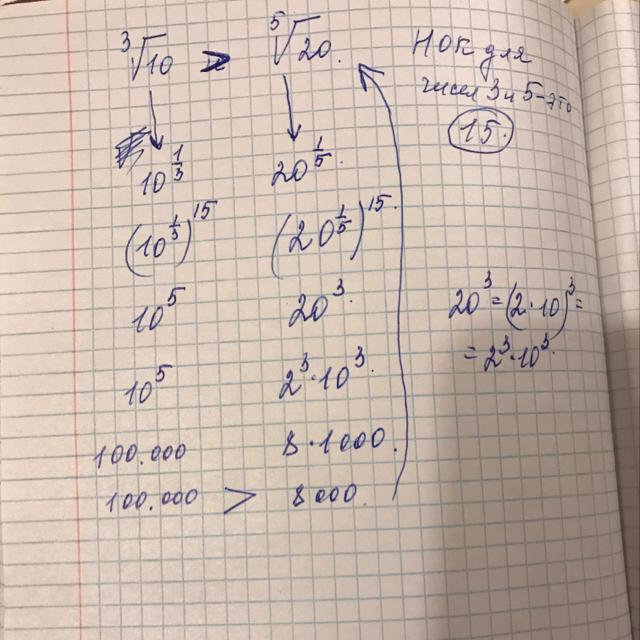 ∛10 > ⁵√20.
НОК для
чисел 3 и 5 - это
15.
10^(1/3) 20^(1/5).
(10^(1/3))^15 (20^(1/5))^15.
10^5 20^3.
20^3 = (2·10)^3 =
= 2^3·10^3.
10^5 2^3·10^3.
100.000 8·1000.
100.000 > 8000.